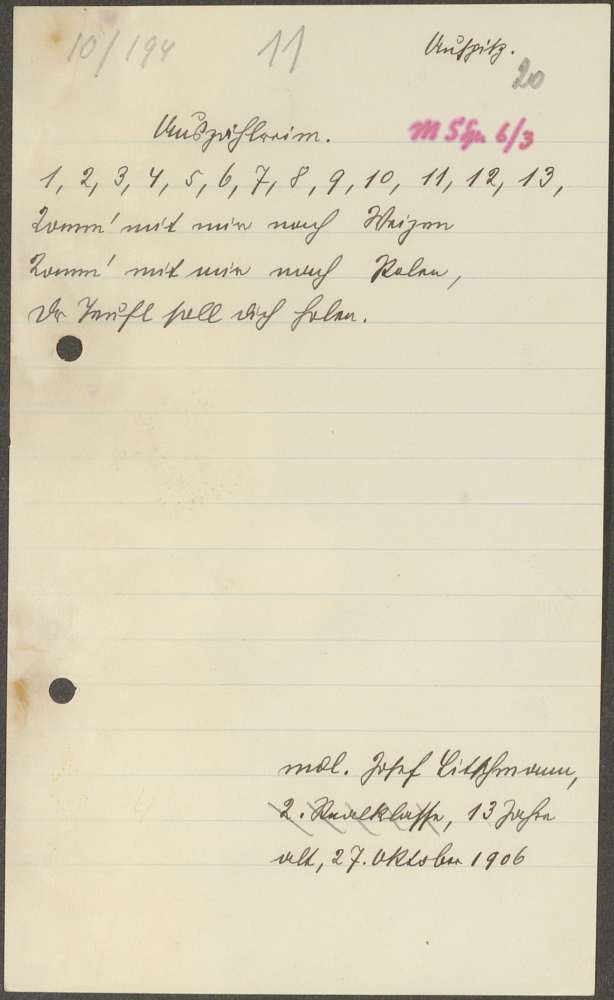 10/194 11 Auspitz.
20
Auszählreim. M 5 Spr 6/3
1, 2, 3, 4, 5, 6, 7, 8, 9, 10, 11, 12, 13,
Komm' mit mir nach Weizen
Komm' mit mir nach Polen,
Der Teufl soll dich holen.
mdl. Josef Litschmann,
2. Realklasse, 13 Jahre
alt, 27. Oktober 1906